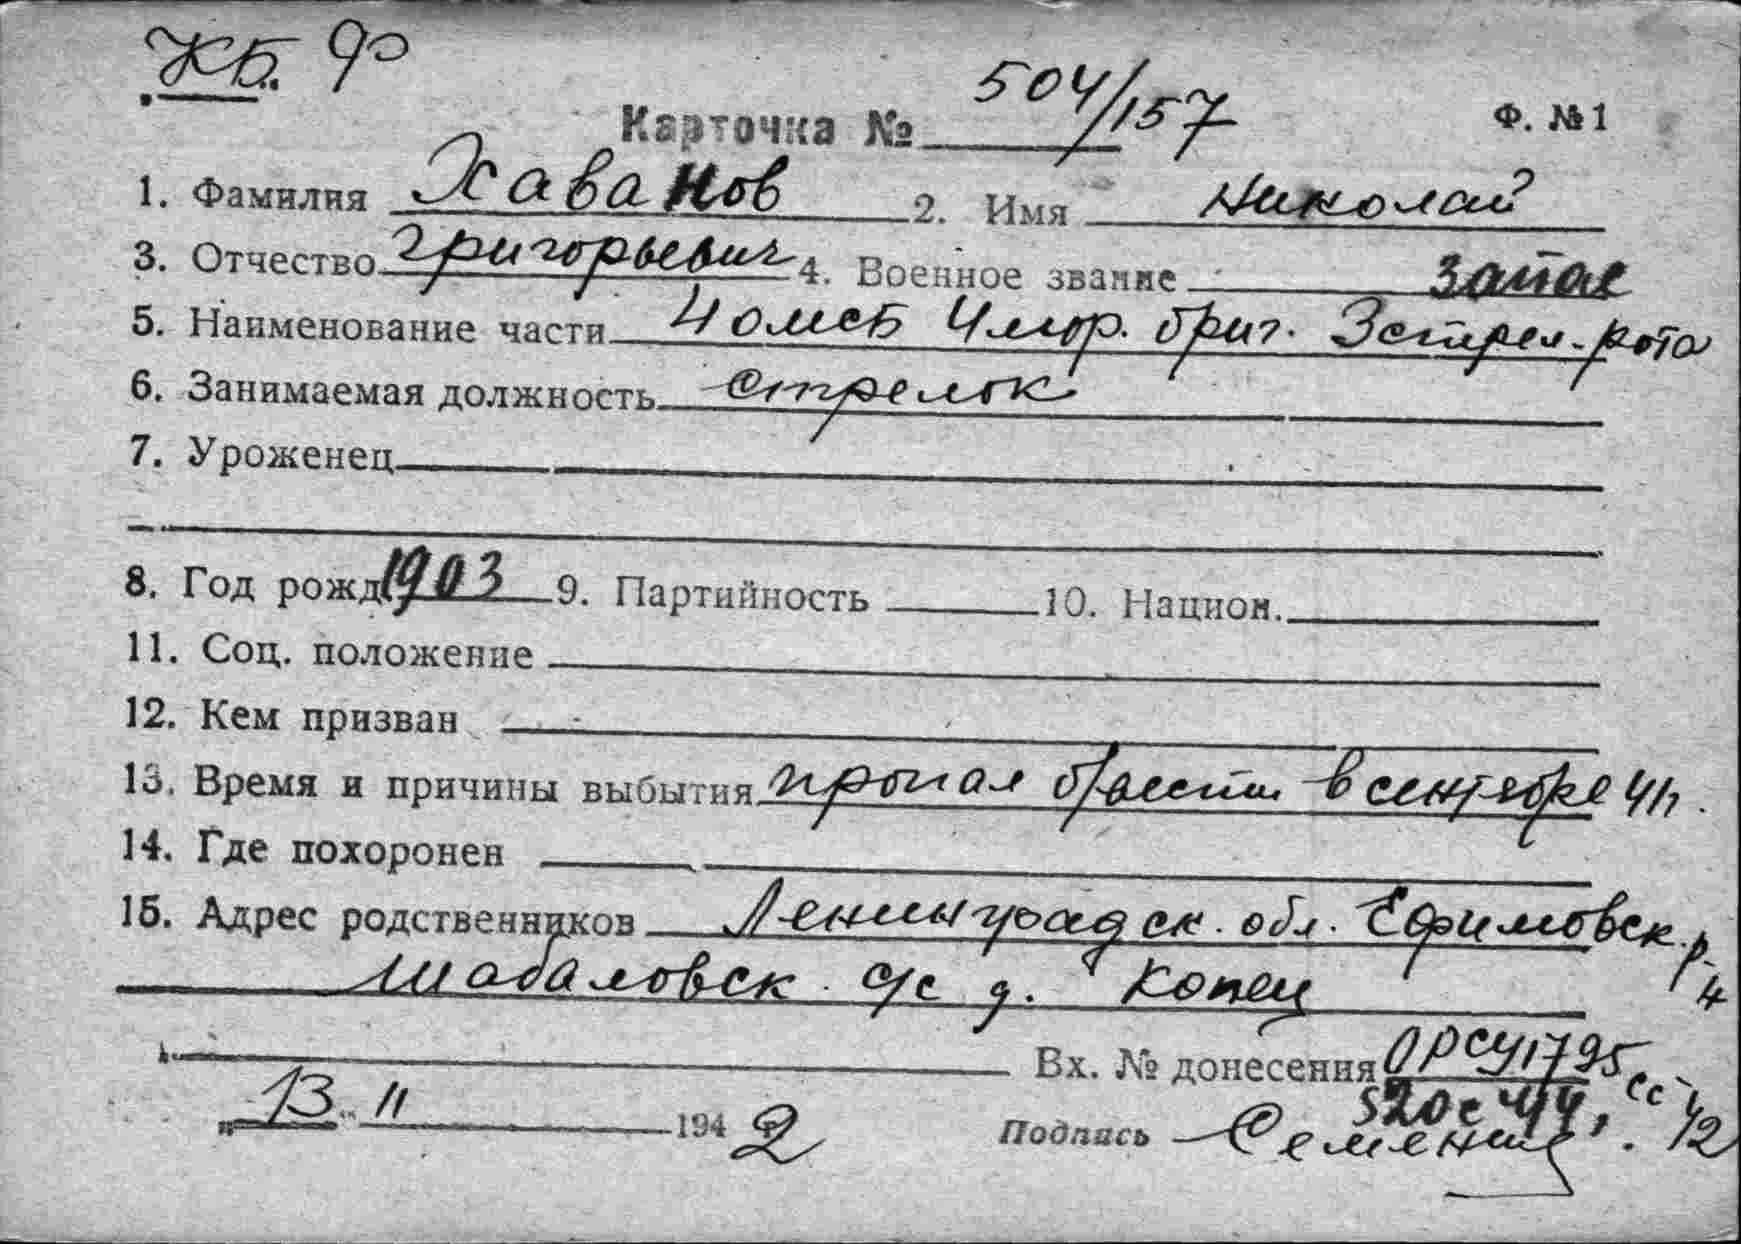 КБФ
Карточка № 504/157 Ф. № 1
1. Фамилия Хаванов 2. Имя Николай
3. Отчество Григорьевич 4. Военное звание запас
5. Наименование части 4 омсб 4 мор. бриг. 3 стрел. рота
6. Занимаемая должность стрелок
7. Уроженец
8. Год рожд 1903 9. Партийность 10. Национ.
11. Соц. положение
12. Кем призван
13. Время и причины выбытия пропал б/вести в сентябре 41г.
14. Где похоронен
15. Адрес родственников Ленинградск. обл. Ефимовск. р-н
Шабаловск с/с д. Копец
Вх. № донесения ОРСУ 1795сс
520с 44,
„13“ 11 1942 Подпись 42